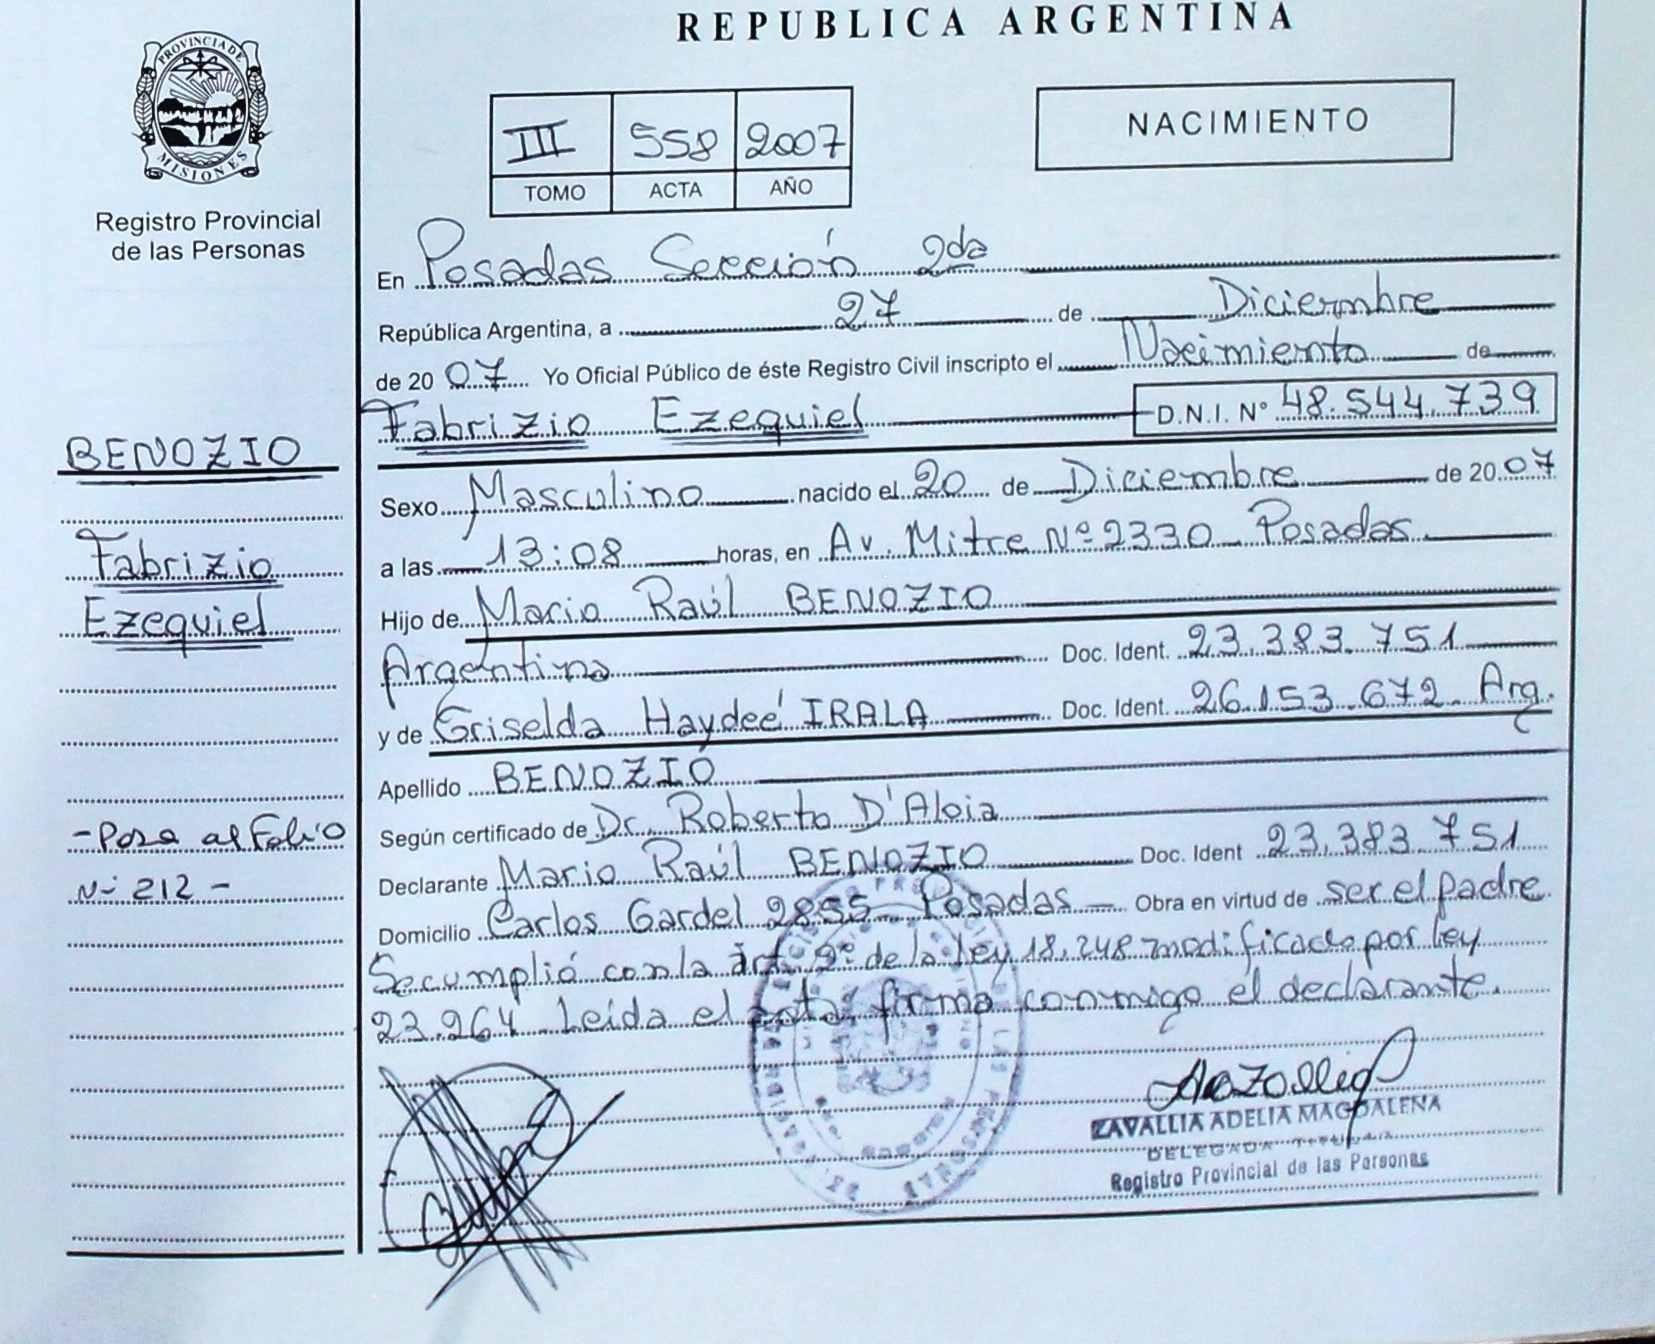 REPUBLICA ARGENTINA
PROVINCIA DE
MISIONES
Registro Provincial
de las Personas
III 558 2007
TOMO ACTA AÑO
NACIMIENTO
En Posadas Sección 2da
República Argentina, a 27 de Diciembre
de 2007 Yo Oficial Público de éste Registro Civil inscripto el Nacimiento de
Fabrizio Ezequiel D.N.I. N° 48.544.739
Sexo Masculino nacido el 20 de Diciembre de 2007
a las 13:08 horas, en Av. Mitre Nº 2330 Posadas
Hijo de Mario Raúl BENOZIO
Argentino Doc. Ident. 23.383.751
y de Griselda Haydeé IRALA Doc. Ident. 26.153.672 Arg.
Apellido BENOZIO
Según certificado de Dr. Roberto D'Aloia
Declarante Mario Raúl BENOZIO Doc. Ident 23.383.751
Domicilio Carlos Gardel 2855 Posadas Obra en virtud de ser el padre
Se cumplió con la art. 2º de la Ley 18.248 modificado por Ley
23.264 Leída el acta, firma conmigo el declarante.
ZAVALLIA ADELIA MAGDALENA
DELEGADA TITULAR
Registro Provincial de las Personas
BENOZIO
Fabrizio
Ezequiel
-Pasa al Folio
Nº 212 -